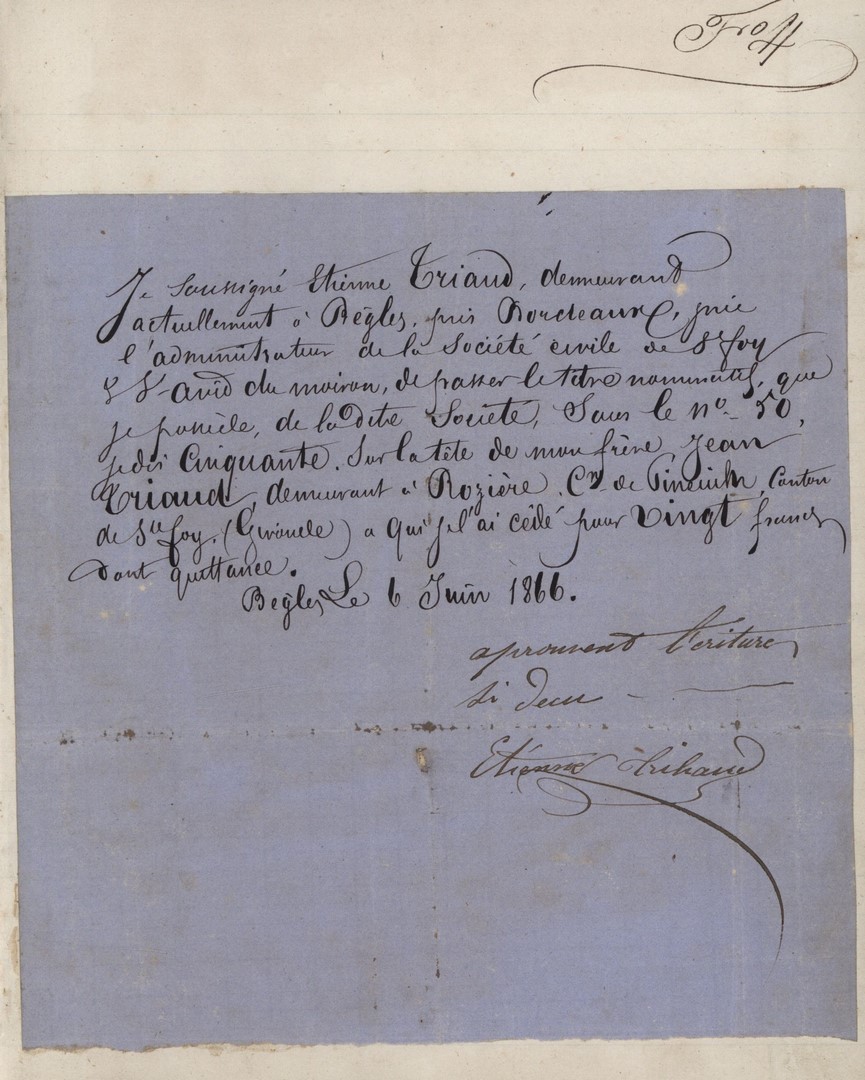 Froff
Je soussigné Etienne Triaud, demeurant
actuellement à Bègles, près Bordeaux, prie
l'administrateur de la Société civile de Ste foy
& St Avid du moiron, de passer le titre nominatif, que
je possède, de la dite Société, Sous le no 50,
je dis Cinquante. Sur la tête de mon frère, Jean
Triaud, demeurant à Rozière. Cne de Pineuilh, Canton
de Ste foy. (Gironde) a qui je l'ai cédé pour Vingt francs
dont quittance.
Bègles, Le 6 Juin 1866.
aprouvent l'ecriture
si decu
Etienne Trihaud